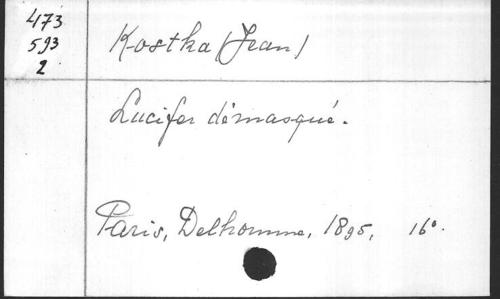 473
593
2
Kostka (Jean)
Lucifer démasqué.
Paris, Delhomme, 1895, 16°.